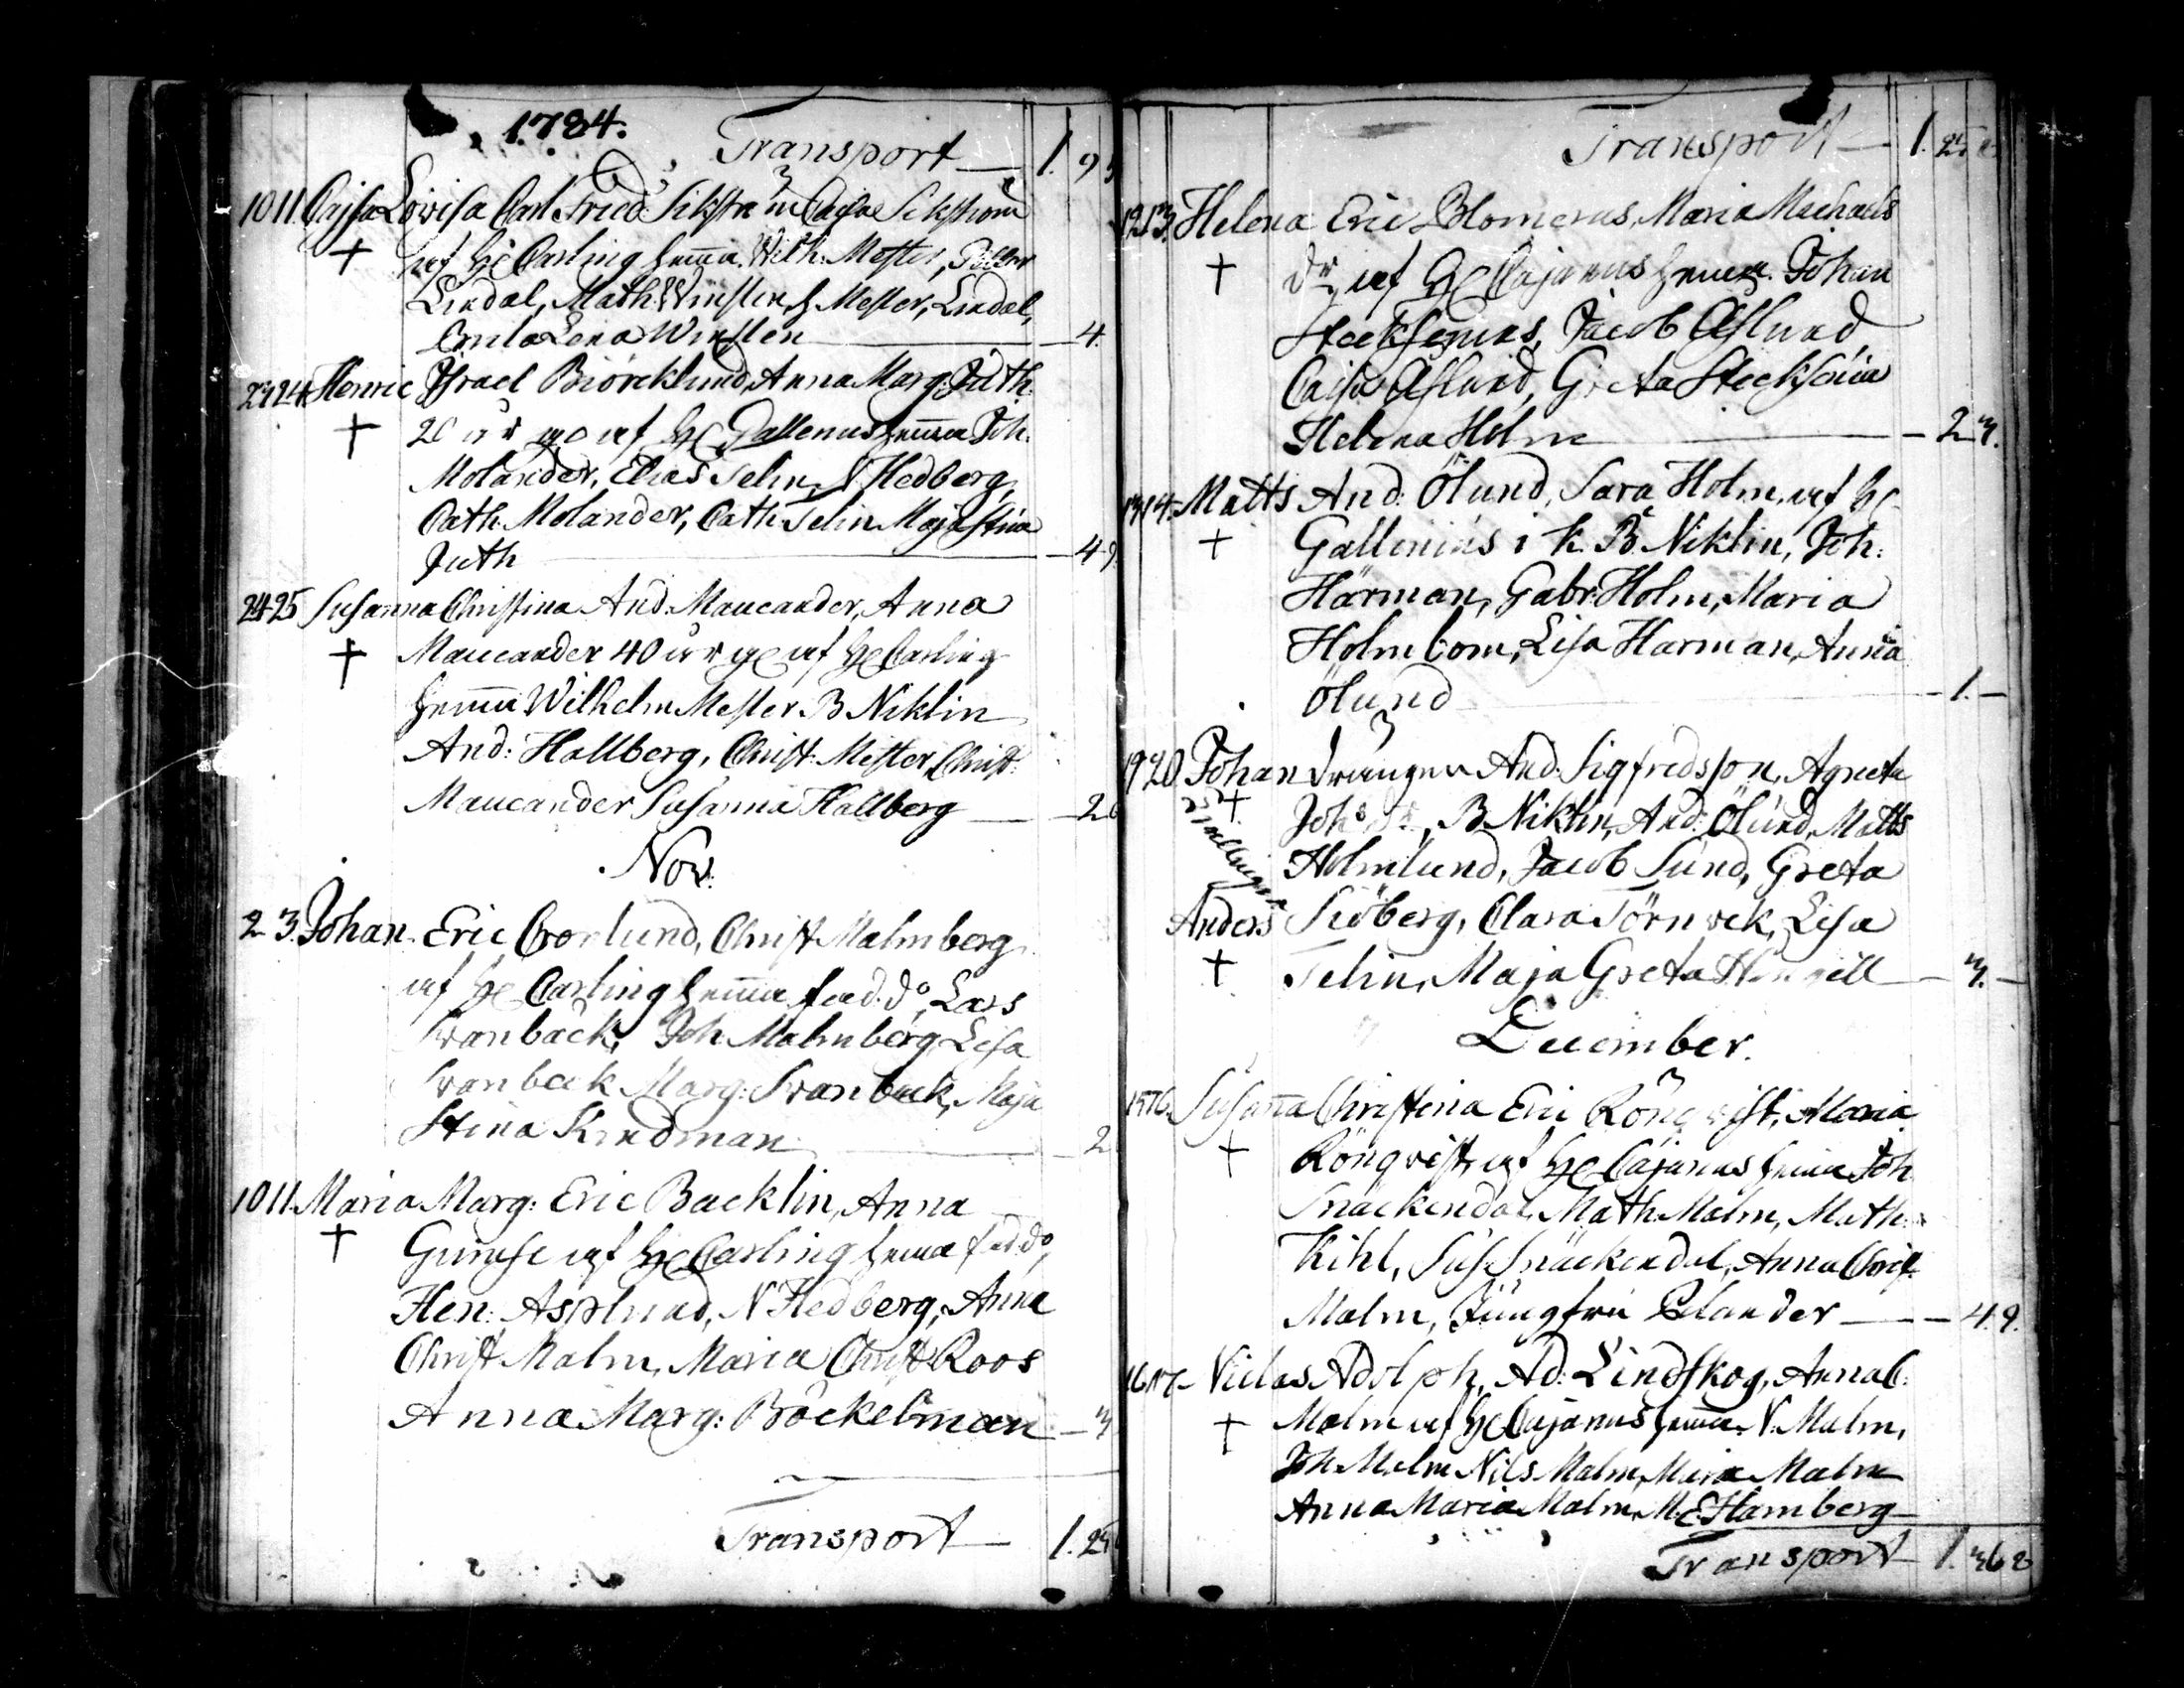 1784.
Transport — 1. 9
10 11. Cajsa Lovisa Carl Fried: Sikström Cajsa Sikstrom
† af H Carling hema. Wilh: Mester,
Lindal, Math: Winsten, h Mester, Lindal,
Lena Winsten — 4.
23 24 Henric Israel Biörcklund, Anna Marg: Juth
† 20 år g af H Gallenus hema Joh:
Molander, Elias Telin, N Hedberg,
Cath: Molander, Cath: Telin Maja Stina
Juth — 4 9
24 25 Susanna Christina And: Maucander, Anna
† Maucander 40 år g af H Carling
hema Wilhelm Mester B Niklin
And: Hallberg, Christ: Mester, Christ:
Maucander Susanna Hallberg — 2
Nov:
2 3. Johan. Eric Cronlund, Christ Malmberg
af H Carling hema fad: do, Lars
Svanbäck, Joh: Malmberg Lisa
Svanback Marg: Svanback, Maja
Stina Sandman — 2
10 11. Maria Marg: Eric Backlin, Anna
† af H Carling hema fad: do,
Hen: Asplund, N Hedberg, Anna
Christ Malm, Maria Christ Roos
Anna Marg: Böckelman — 3
Transport — 1. 25
Transport — 1. 25
12 13. Helena Eric Blomerus, Maria Michaels
† dr, af H Cajanus hema. Johan
Stecksenius, Jacob Åslund,
Cajsa Åslund, Greta Stecksenia
Helena Holm — 2 3.
13 14. Matts And: Ölund, Sara Holm, af H
† Gallenius i k. B Niklin, Joh:
Härman, Gabr: Holm, Maria
Holmbom, Lisa Harman, Anna
Ölund — 1. —
19 20. Johan drängen And: Sigfredsson, Agneta
† Johs dr, B Niklin, And: Ölund, Matts
Tvillingar
Holmlund, Jacob Sund, Greta
Anders Siöberg, Clara Törnvek, Lisa
† Telin, Maja Greta — 3. —
December.
15 16. Susanna Christina Eric Rönqvist, Maria
† Rönqvist, af H Cajanus hema Joh
Snäckendal, Math: Malm, Math:
Kihl, Sus: Snäckendal, Anna Christ
Malm, Jungfru Pelander — 4. 9.
16 17 Niclas Adolph, Ad: Lindskog, Anna C:
† Malm af H Cajanus hema. N: Malm,
Joh: Malm Nils Malm, Maria Malm
Anna Maria Malm, M: E: Hamberg —
Transport — 1. 36 8